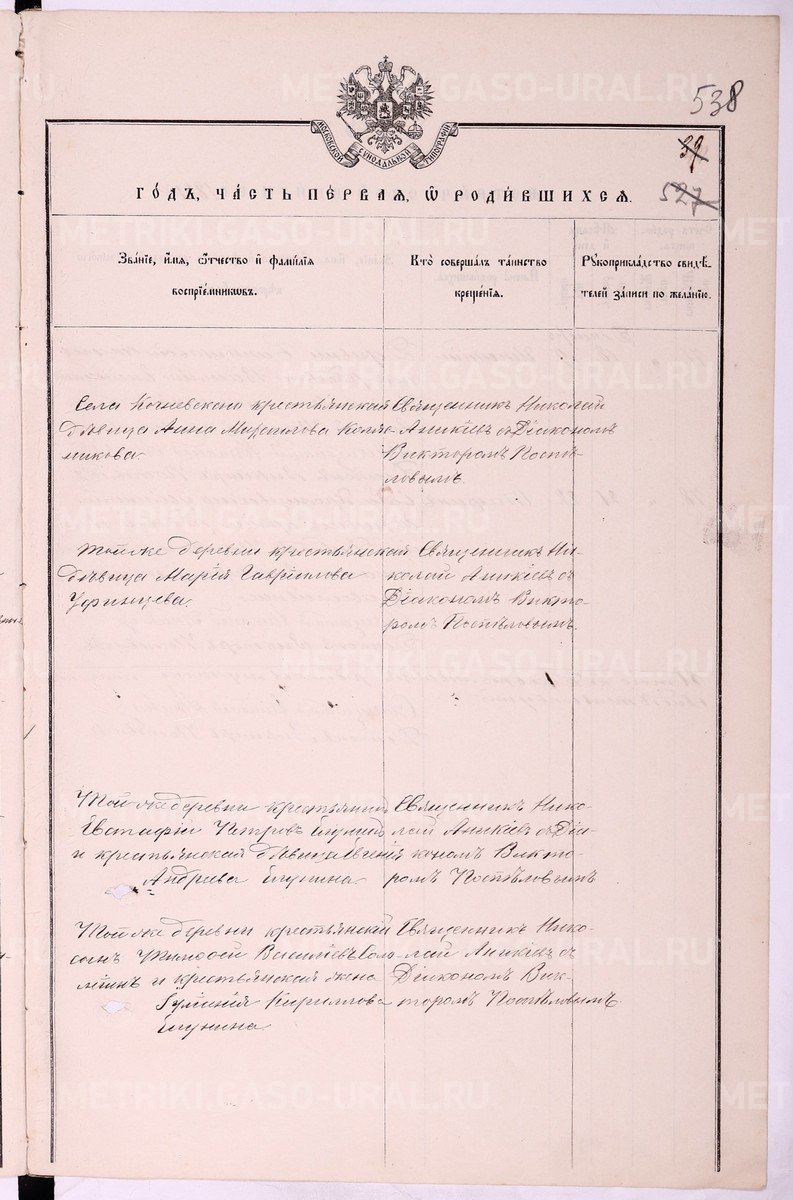 538
39
527
МОСКОВСКОЙ СУНОДАЛЬНОЙ ТИПОГРАФІИ
ГО́ДЪ, ЧА́СТЬ ПЕ́РВАЯ, Ѿ РОДИ́ВШИХСЯ.
Зва́ніе, и́мя, ѻ́тчество и҆ фами́лія
воспріе́мниковъ.
Кто̀ соверша́лъ та́инство
креще́нія.
Рꙋкоприкла́дство свидѣ́-
телей за́писи по жела́нію.
Села Кочневскаго крестьянская
дѣвица Анна
никова.
Священникъ Николай
Аникіевъ съ Діакономъ
Викторомъ Поспѣ-
ловымъ.
Той же деревни крестьянская
дѣвица Марія Гавріилова
Уфинцева.
Священникъ Ни-
колай Аникіевъ съ
Діакономъ Викто-
ромъ Поспѣловымъ.
Той же деревни крестьянинъ
Евстафій Петровъ
и крестьянская дѣвица Евгенія
Андреева
Священникъ Нико-
лай Аникіевъ съ Діа-
кономъ Викто-
ромъ Поспѣловымъ
Той же деревни крестьянскій
сынъ Тимофей Васильевъ
и крестьянская жена
Кириллова
Священникъ Нико-
лай Аникіевъ съ
Діакономъ Вик-
торомъ Поспѣловымъ.
METRIKI.GASO-URAL.RU